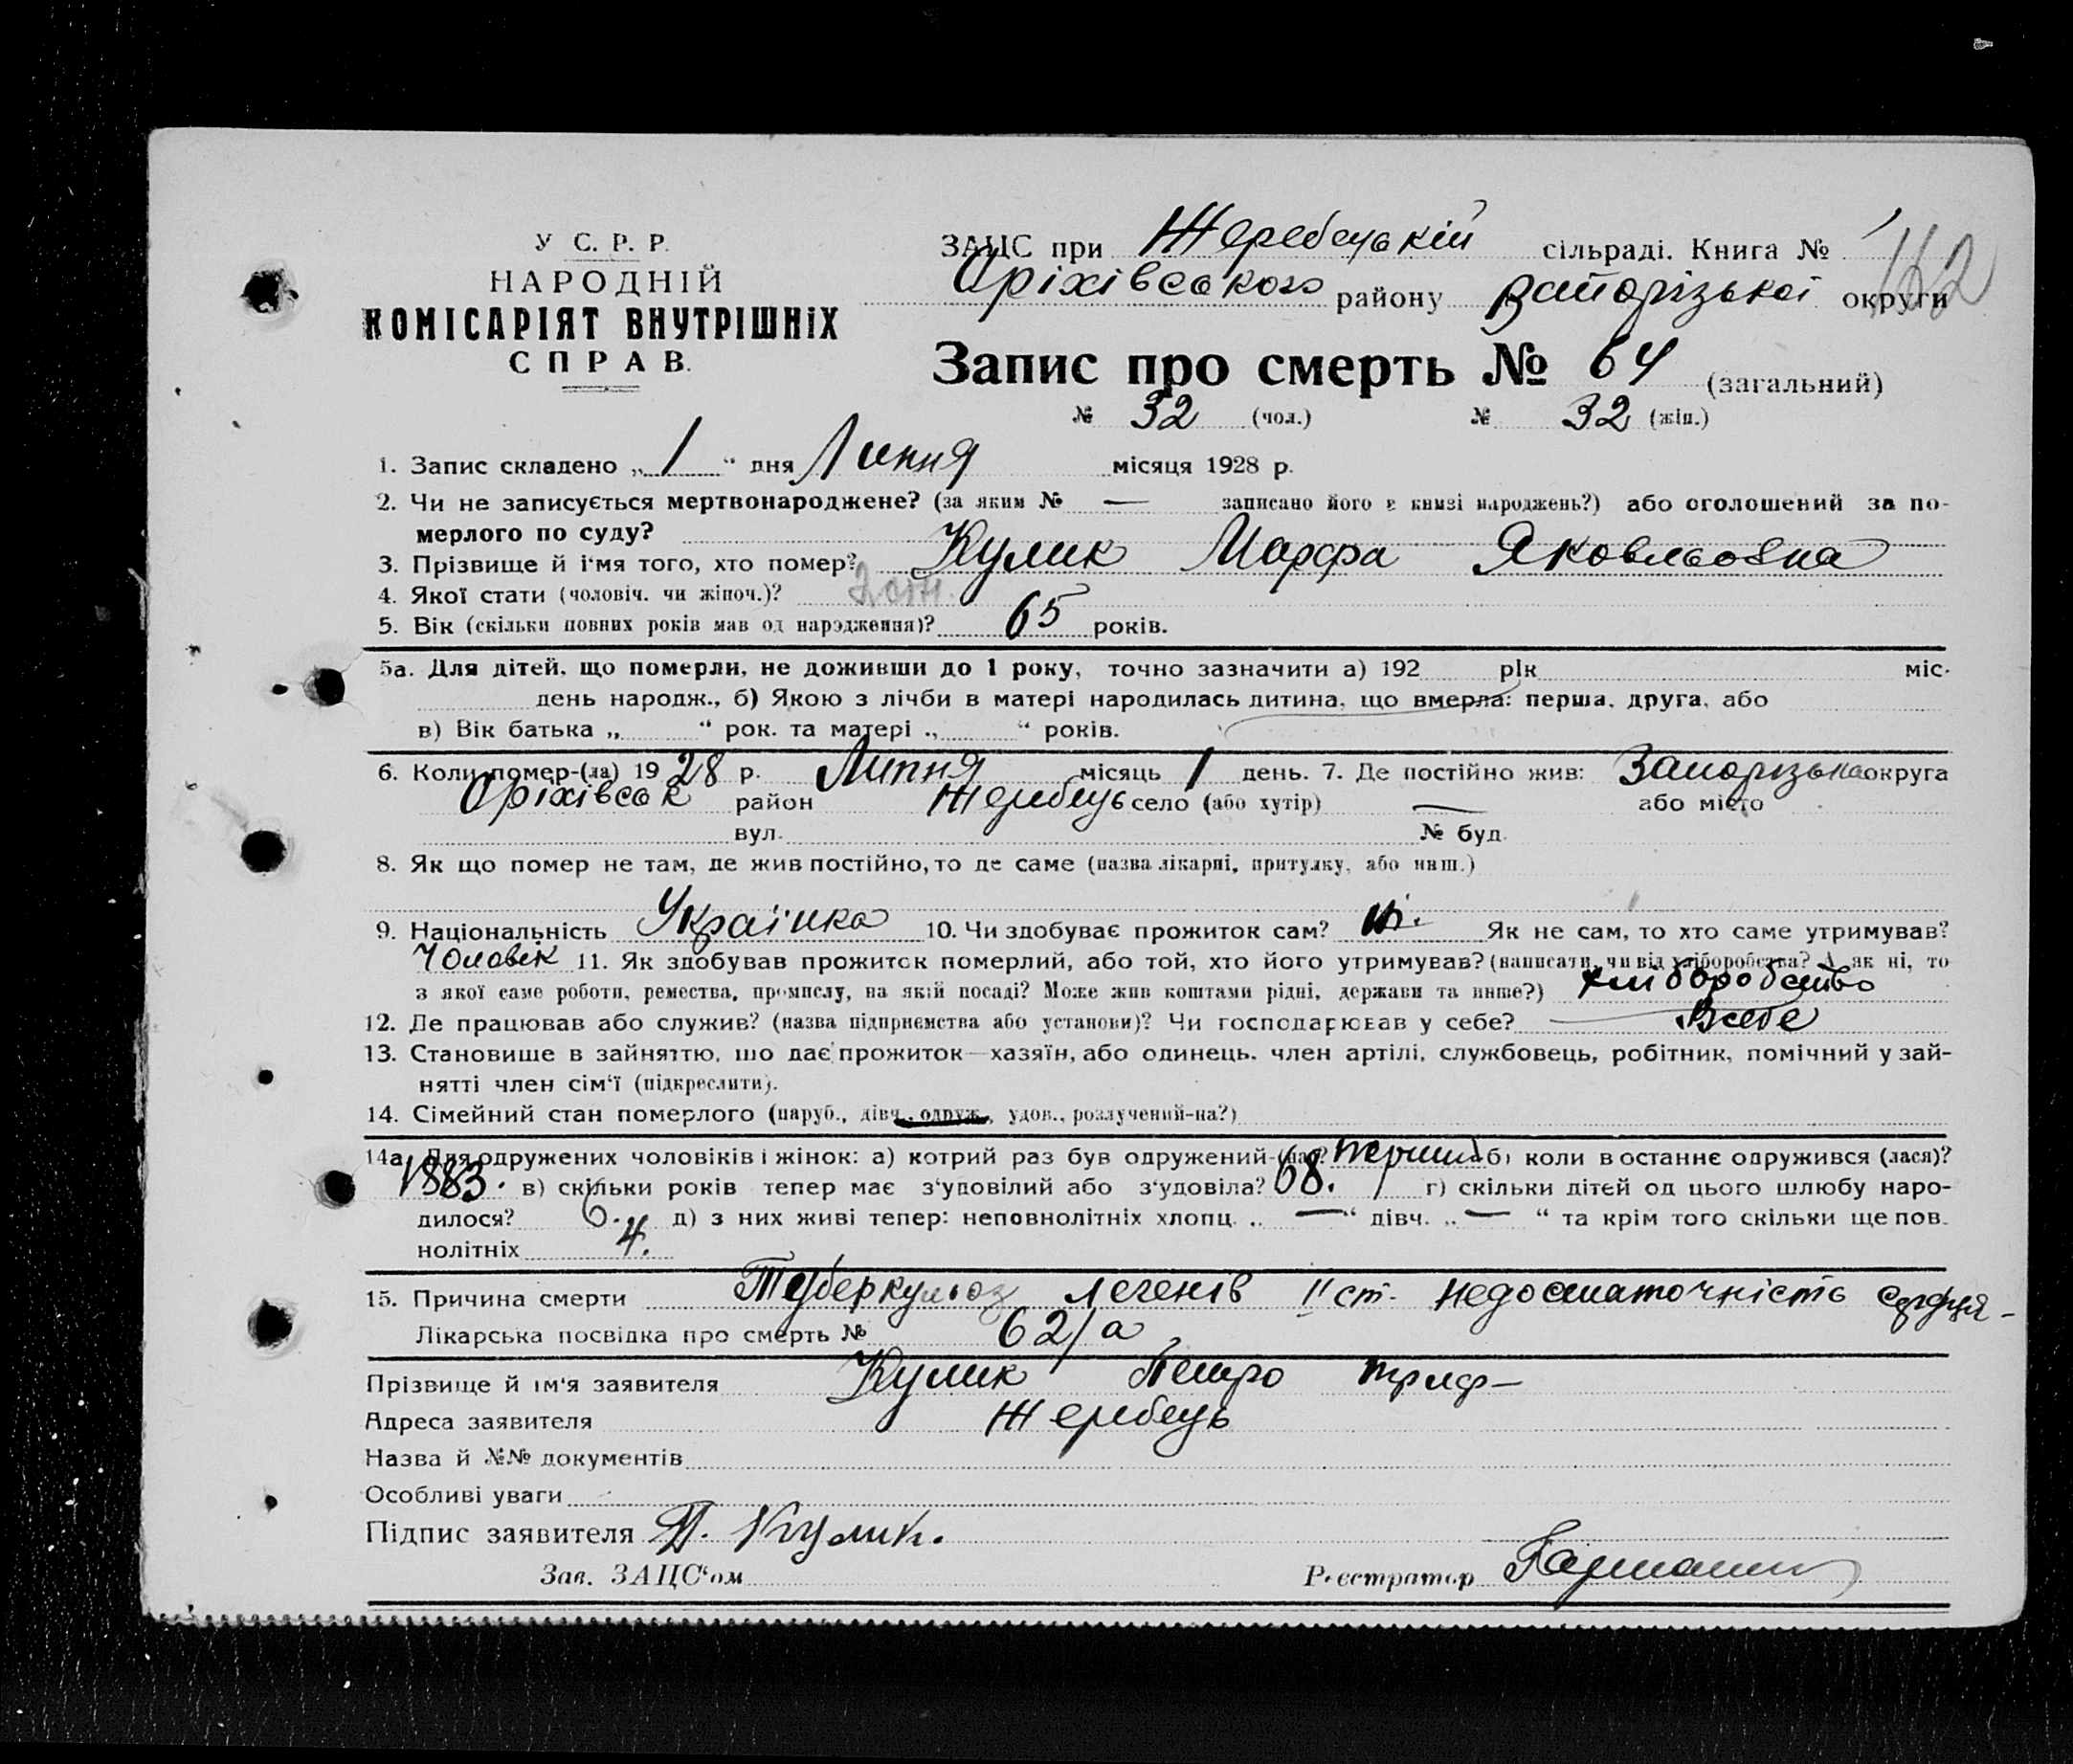 У С. Р. Р.
НАРОДНІЙ
КОМІСАРІЯТ ВНУТРІШНІХ
СПРАВ.
ЗАЦС при Жеребецькій сільраді. Книга № 1
162
Оріхівського району Запорізької округи
Запис про смерть № 64 (загальний)
№ 32 (чол.) № 32 (жін.)
1. Запис складено „ 1 “ дня Липня місяця 1928 р.
2. Чи не записується мертвонароджене? (за яким № — записано його в книзі народжень?) або оголошений за по-
мерлого по суду?
3. Прізвище й і'мя того, хто помер? Кулик Марфа Яковльовна
4. Якої стати (чоловіч. чи жіноч.)? Жін.
5. Вік (скільки повних років мав од народження)? 65 років.
5а. Для дітей, що померли, не доживши до 1 року, точно зазначити а) 192 рік міс.
день народж., б) Якою з лічби в матері народилась дитина, що вмерла: перша, друга, або
в) Вік батька „ “ рок. та матері „ “ років.
6. Коли помер-(ла) 1928 р. Липня місяць 1 день. 7. Де постійно жив: Запорізька округа
Оріхівськ район Жеребець село (або хутір) — або місто
вул. № буд.
8. Як що помер не там, де жив постійно, то де саме (назва лікарні, притулку, або инш.)
9. Національність Українка 10. Чи здобуває прожиток сам? ні. Як не сам, то хто саме утримував?
Чоловік 11. Як здобував прожиток померлий, або той, хто його утримував? (написати, чи від хліборобства? А як ні, то
з якої саме роботи, ремества, промислу, на якій посаді? Може жив коштами рідні, держави та инше?) хліборобство
12. Де працював або служив? (назва підприємства або установи)? Чи господарював у себе? В себе
13. Становище в зайняттю, що дає прожиток—хазяїн, або одинець, член артілі, службовець, робітник, помічний у зай-
нятті член сім'ї (підкреслити).
14. Сімейний стан померлого (паруб., дівч., одруж., удов., розлучений-на?)
14а. Для одружених чоловіків і жінок: а) котрий раз був одружений-(на)? перший б) коли востаннє одружився (лася)?
1883. в) скільки років тепер має з'удовілий або з'удовіла? 68. г) скільки дітей од цього шлюбу наро-
дилося? 6. д) з них живі тепер: неповнолітніх хлопц. „ — “ дівч. „ — “ та крім того скільки ще пов-
нолітніх 4.
15. Причина смерти Туберкульоз легенів II ст. недостаточність серця-
Лікарська посвідка про смерть № 62/а
Прізвище й ім'я заявителя Кулик Петро Триф—
Адреса заявителя Жеребець
Назва й №№ документів
Особливі уваги
Підпис заявителя П. Кулик.
Зав. ЗАЦС'ом Реєстратор